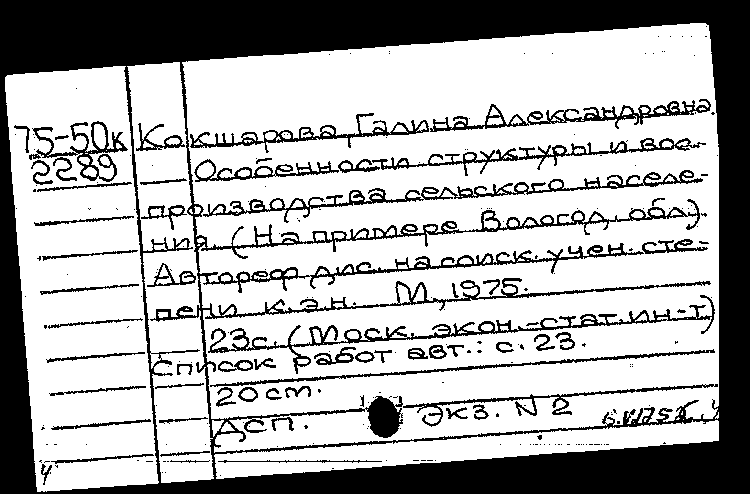 75-50к Кокшарова, Галина Александровна.
2289 Особенности структуры и вос-
производства сельского населе-
ния. (На примере Вологод. обл.).
Автореф дис. на соиск. учен. сте-
пени к.э.н. М., 1975.
23с. (Моск. экон.-стат. ин-т)
Список работ авт.: с. 23.
20 см.
ДСП. Экз. N 2